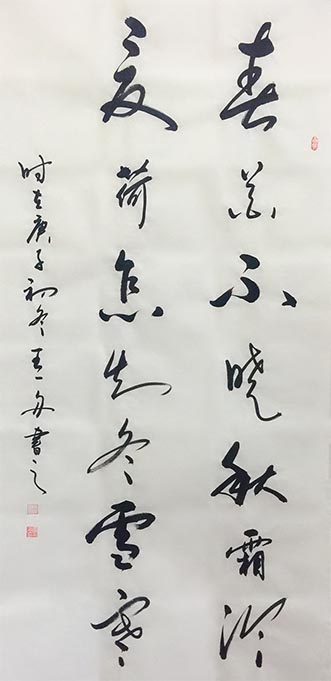 春花不晓秋霜冷
夏荷怎知冬雪寒
时在庚子初冬王一舟書之